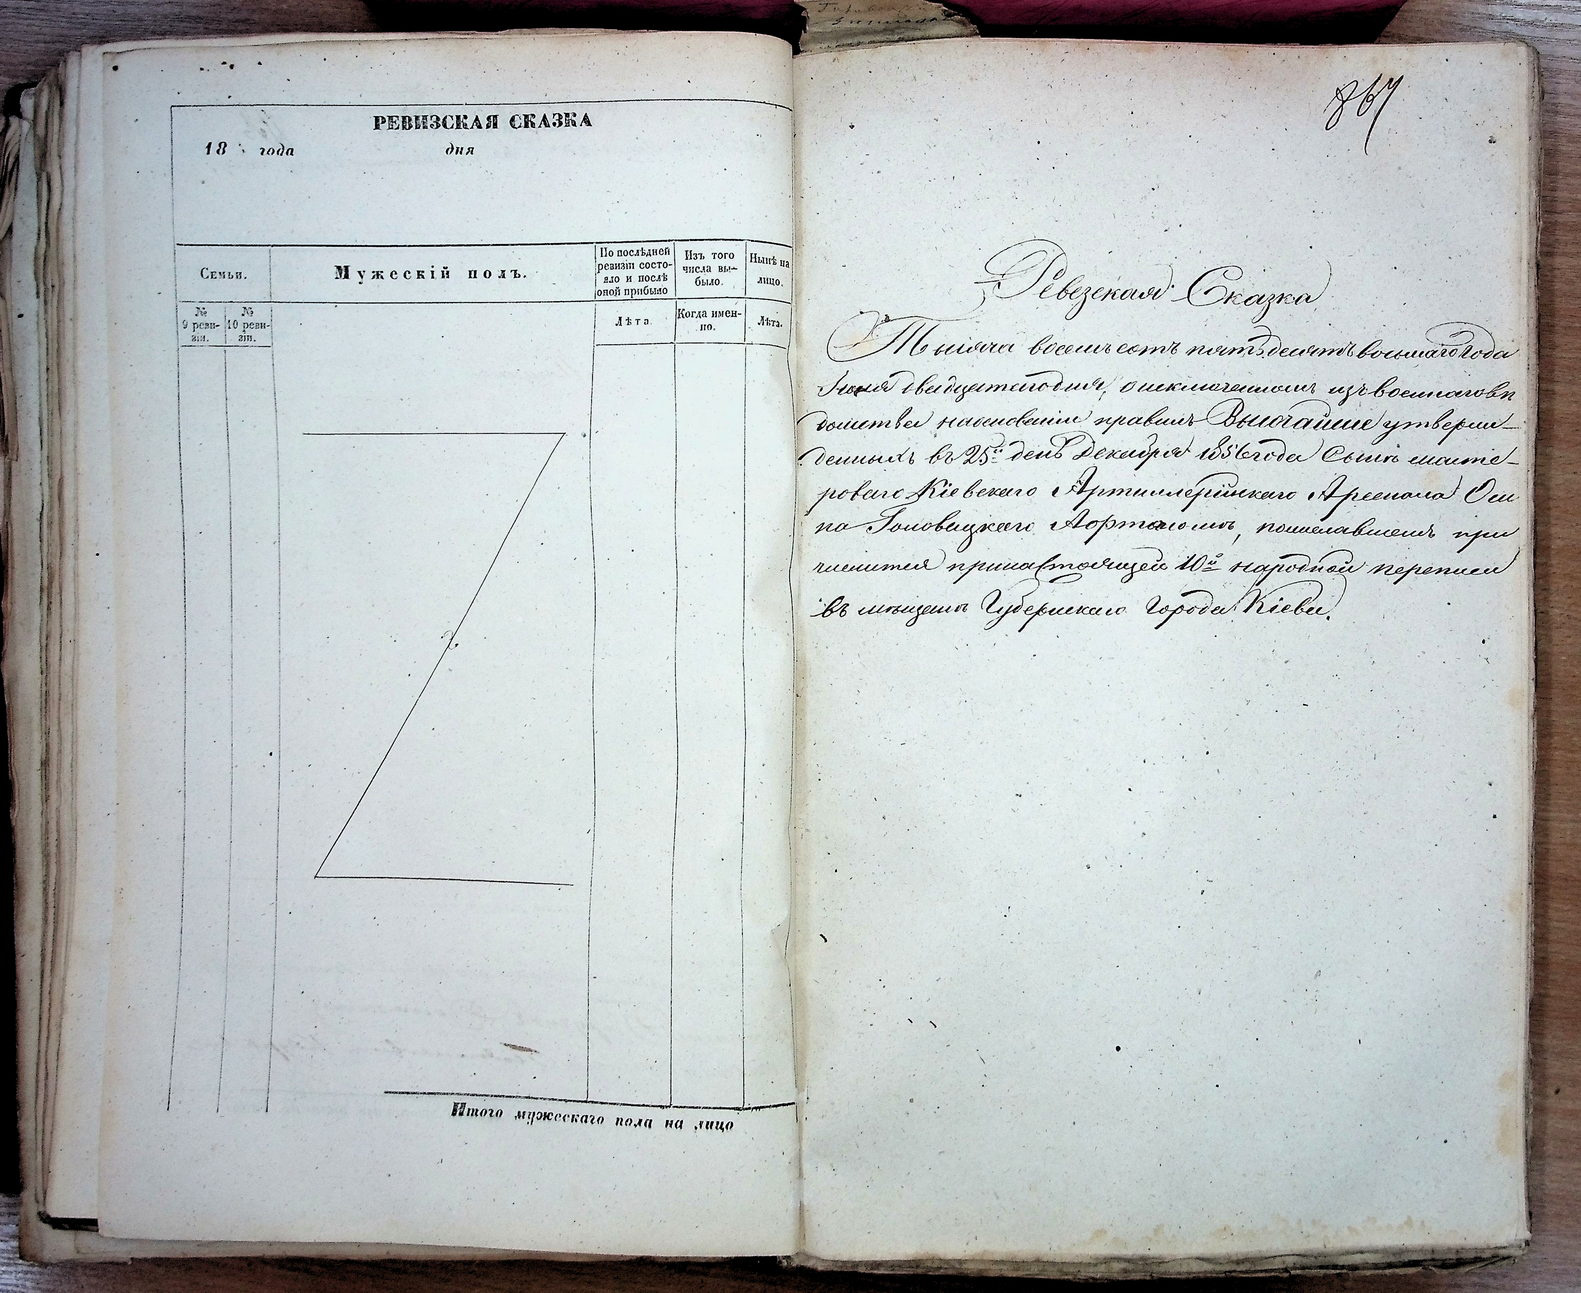 РЕВИЗСКАЯ СКАЗКА
18 года дня
Семьи.
Мужескій полъ.
По послѣдней ревизіи состояло и послѣ оной прибыло
Изъ того числа выбыло.
Нынѣ на лицо.
№ 9 ревизіи.
№ 10 ревизіи.
Лѣта.
Когда именно.
Лѣта.
Итого мужескаго пола на лицо
867
Ревезская Сказка
Тысяча восемьсотъ пятьдесятъ восьмаго года
двадцатаго дня, о исключенномъ изъ военнаго вѣ
домства на основаніи правилъ Высочайше утверж-
денныхъ въ 25й день Декабря 1856 года Сынѣ масте-
роваго Кіевскаго Артиллерійскаго Арсенала Оси
па Головацкаго пожелавшемъ при
числится при настоящей 10й народной переписи
въ мѣщане Губернскаго Города Кіева.